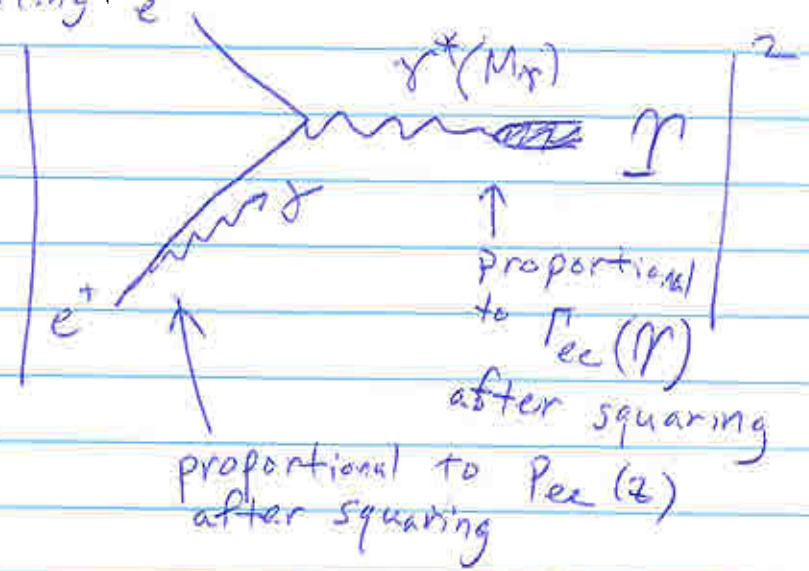 e
2
γ*(Mϒ)
ϒ
γ
e+
proportional
to Γee(ϒ)
after squaring
proportional to Pee(z)
after squaring